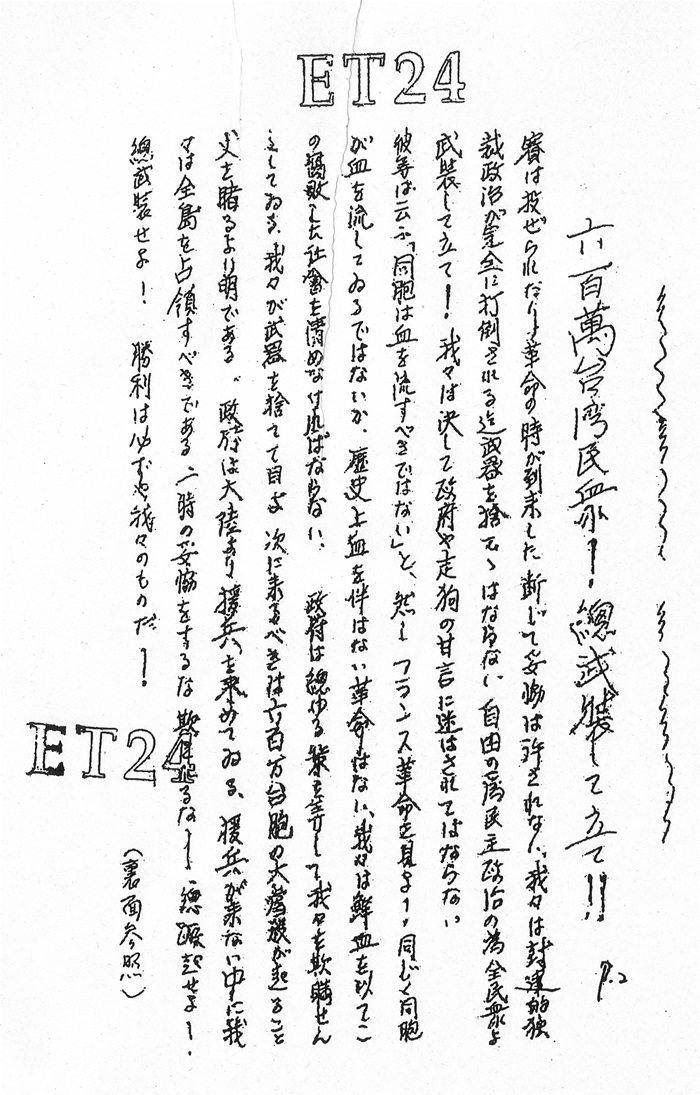 ET24
六百萬台湾民衆!總武装して立て!!
P.2
賽は投ぜられたり!革命の時が到来した 断じて妥協は許されない、我々は封建的独
裁政治が完全に打倒される迄武器を捨てゝはならない 自由の為民主政治の為全民衆よ
武装して立て!我々は決して政府や走狗の甘言に迷はされてはならない
彼等は云ふ「同胞は血を流すべきではない」と、然し フランス革命を見よ!同じく同胞
が血を流してゐるではないか、歴史上血を伴はない革命はない、我々は鮮血を以てこ
の腐敗した社會を清めなければならない、政府は總ゆる策を弄して我々を欺瞞せん
としてゐる、我々が武器を捨てて見よ 次に来るべきは六百万台胞の大虐殺が起ること
火を睹るより明である。政府は大陸より援兵を求めてゐる、援兵が来ない中に我
々は全島を占領すべきである 一時の妥協をするな るな!總蹶起せよ!
總武装せよ! 勝利は必ずや我々のものだ!
ET24
(裏面参照)